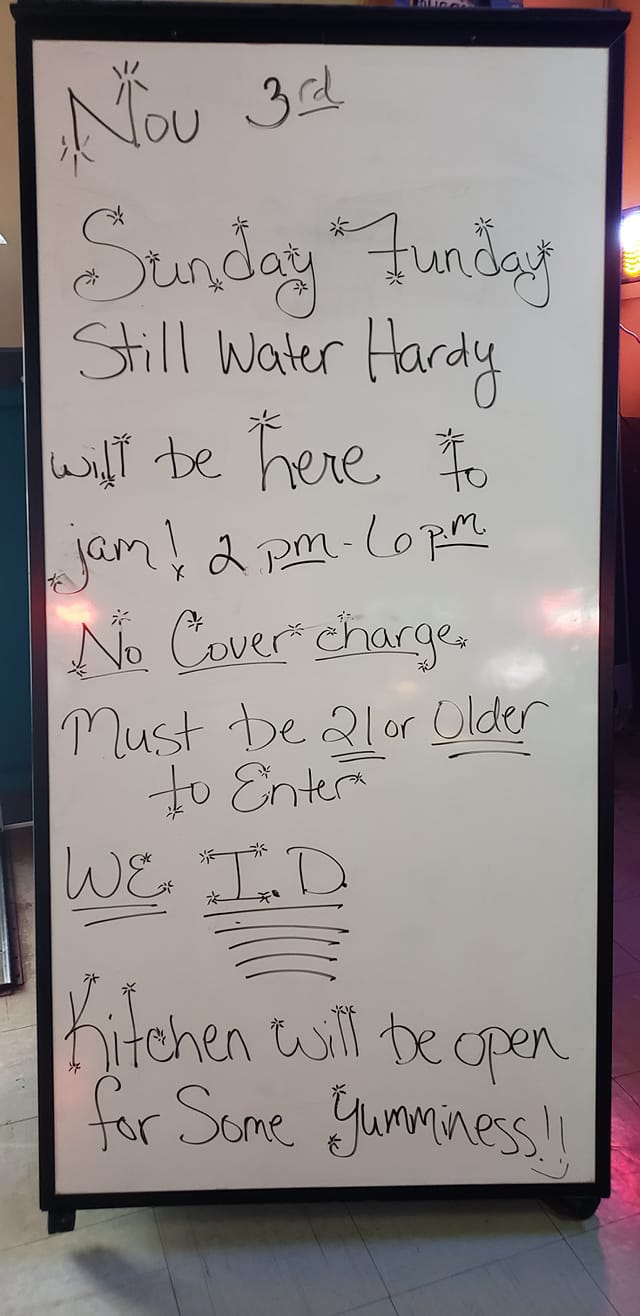 Nov 3rd
Sunday Funday
Still Water Hardy
will be here to
jam! 2 pm - 6 p.m.
No Cover charge
Must be 21 or Older
to Enter
WE I.D.
Kitchen will be open
for Some yumminess!!